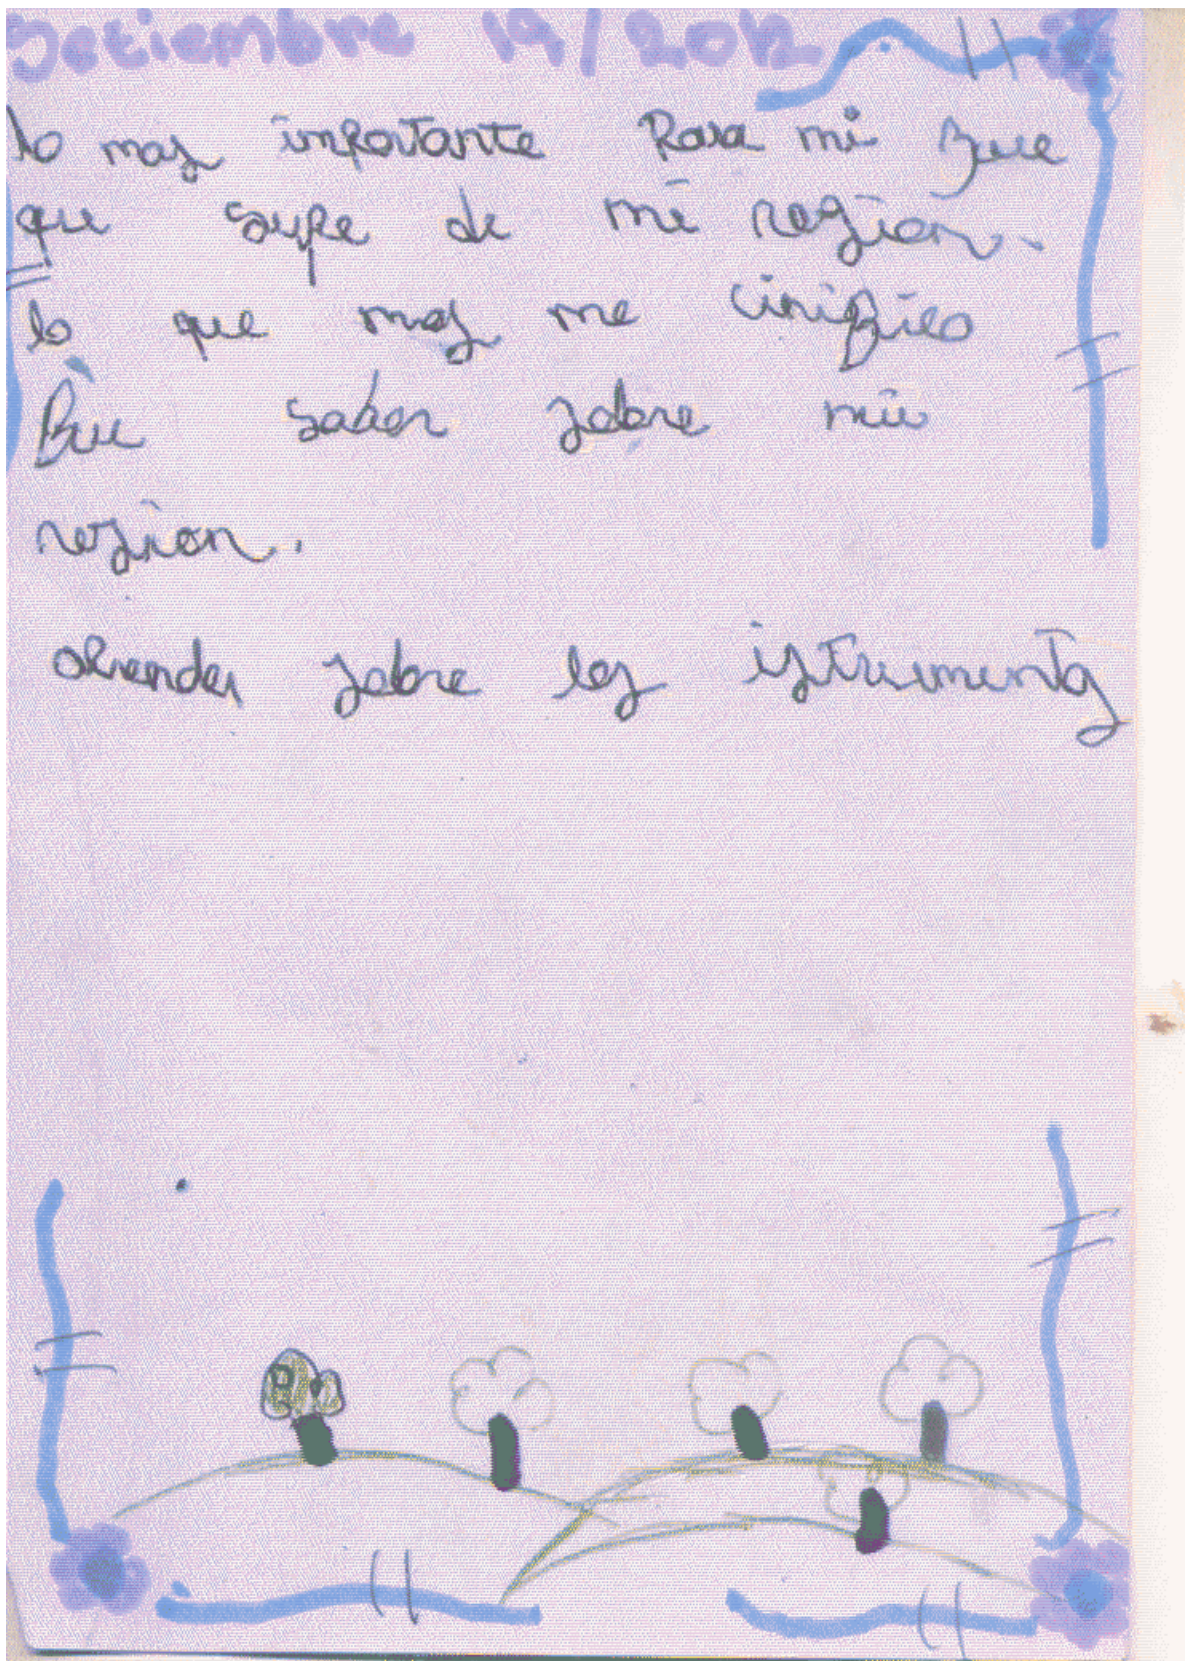 Setiembre 19/2012
lo mas importante Para mi fue
que supe de mi region.
lo que mas me cinifico
fue saber sobre mi
region.
aprender sobre los istrumentos